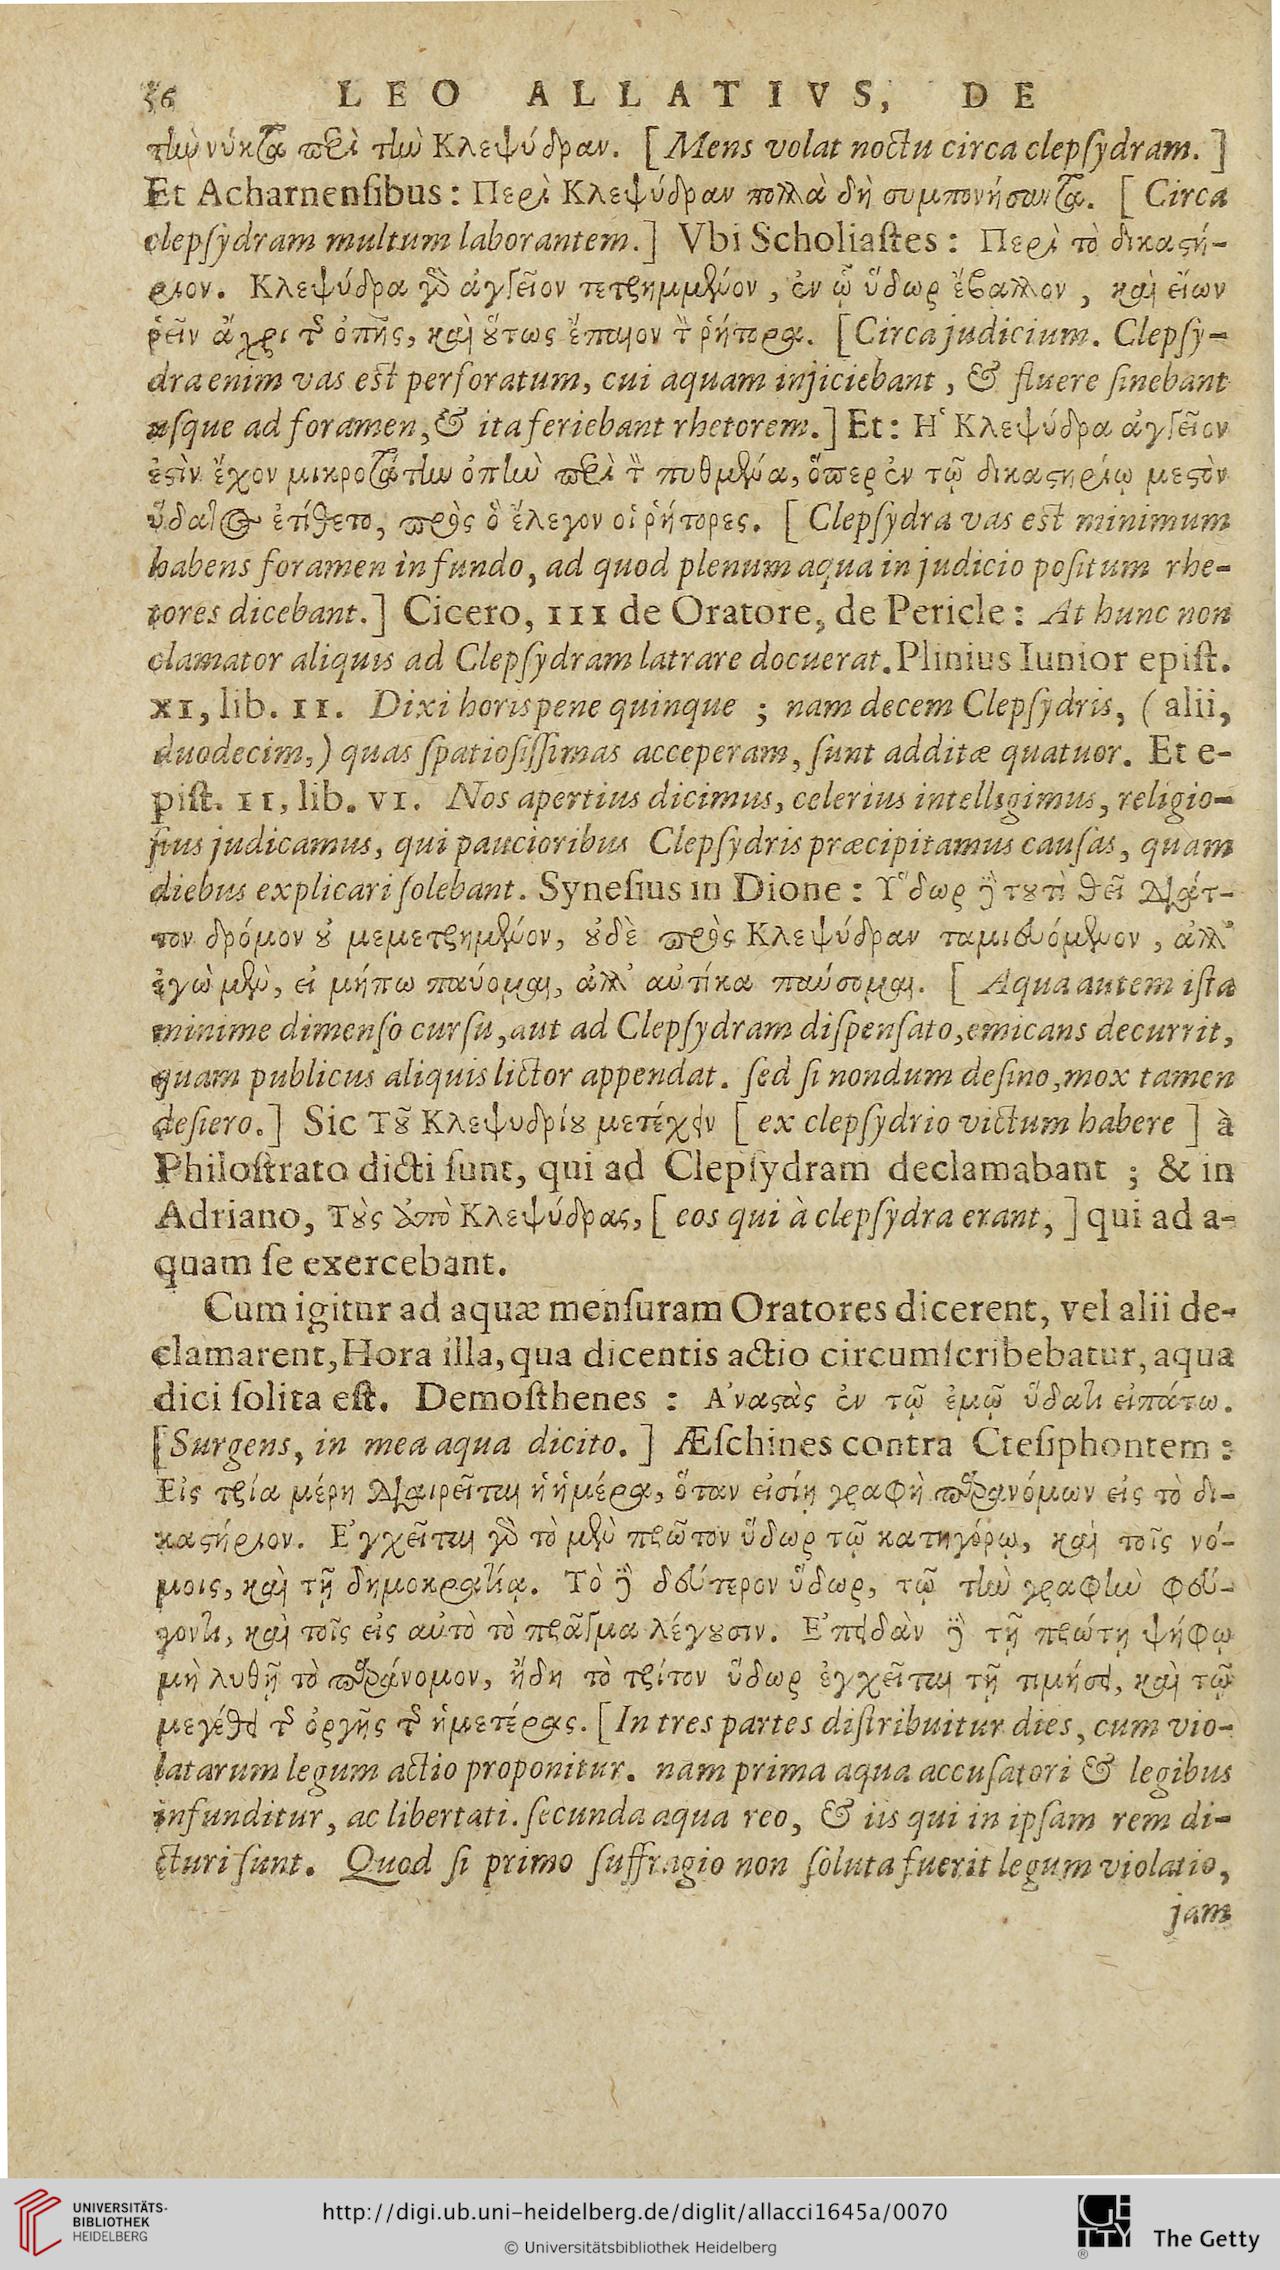 56 LEO ALLATIVS, DE
τὴν νύκτα περὶ τὴν Κλεψύδραν. [ Mens volat noctu circa clepſydram. ]
Et Acharnenſibus: Περὶ Κλεψύδραν πολλὰ δὴ συμπονήσαντα. [ Circa
clepſydram multum laborantem.] Vbi Scholiaſtes: Περὶ τὸ δικαστή-
ριον. Κλεψύδρα γὸ ἀγγεῖον τετρημμένον, ἐν ᾧ ὕδωρ ἔβαλλον, καὶ εἴων
ῥεῖν ἄχρι τ͂ ὀπῆς, καὶ ȣ῞τως ἔπαιον τ̀ ῥήτορα. [Circa judicium. Clepſy-
dra enim vas eſt perforatum, cui aquam injiciebant, & fluere ſinebant
uſque ad foramen,& ita feriebant rhetorem.] Et: Ἡ Κλεψύδρα ἀγγεῖον
ἐστὶν ἔχον μικροτάτην ὀπὴν περὶ τ̀ πυθμένα, ὅπερ ἐν τῷ δικαστηρίῳ μεστὸν
ὕδατος ἐτίθετο, πρὸς ὃ ἔλεγον οἱ ῥήτορες. [ Clepſydra vas eſt minimum
habens foramen in fundo, ad quod plenum aqua in judicio poſitum rhe-
tores dicebant.] Cicero, III de Oratore, de Pericle: At hunc non
clamator aliquis ad Clepſydram latrare docuerat. Plinius Iunior epiſt.
XI, lib. II. Dixi horis pene quinque ; nam decem Clepſydris, ( alii,
duodecim,) quas ſpatioſiſſimas acceperam, ſunt additæ quatuor. Et e-
piſt. II, lib. VI. Nos apertius dicimus, celerius intelligimus, religio-
ſius judicamus, qui paucioribus Clepſydris præcipitamus cauſas, quam
diebus explicari ſolebant. Syneſius in Dione: Ὕδωρ δὲ τȣτὶ θεῖ διάτ-
τον δρόμον ȣ̓ μεμετρημένον, ȣ̓δὲ πρὸς Κλεψύδραν ταμιευόμενον, ἀλλ᾽
ἐγὼ μὲν, εἰ μήπω παύομαι, ἀλλ᾽ αὐτίκα παύσομαι. [ Aqua autem iſta
minime dimenſo curſu, aut ad Clepſydram diſpenſato, emicans decurrit,
quam publicus aliquis lictor appendat. ſed ſi nondum deſino, mox tamen
deſiero.] Sic Τȣ͂ Κλεψυδρίȣ μετέχειν [ ex clepſydrio victum habere ] à
Philoſtrato dicti ſunt, qui ad Clepſydram declamabant ; & in
Adriano, Τȣ̀ς ἀπὸ Κλεψύδρας, [ eos qui à clepſydra erant, ] qui ad a-
quam ſe exercebant.
Cum igitur ad aquæ menſuram Oratores dicerent, vel alii de-
clamarent, Hora illa, qua dicentis actio circumſcribebatur, aqua
dici ſolita eſt. Demoſthenes : Ἀναστὰς ἐν τῷ ἐμῷ ὕδατι εἰπάτω.
[Surgens, in mea aqua dicito. ] Æſchines contra Cteſiphontem:
Εἰς τρία μέρη διαιρεῖται ἡ ἡμέρα, ὅταν εἰσίῃ γραφὴ παρανόμων εἰς τὸ δι-
καστήριον. Ἐγχεῖται γὸ τὸ μὲν πρῶτον ὕδωρ τῷ κατηγόρῳ, καὶ τοῖς νό-
μοις, καὶ τῇ δημοκρατίᾳ. Τὸ δὲ δεύτερον ὕδωρ, τῷ τὴν γραφὴν φεύ-
γοντι, καὶ τοῖς εἰς αὐτὸ τὸ πρᾶγμα λέγȣσιν. Ἐπειδὰν δὲ τῇ πρώτῃ ψήφῳ
μὴ λυθῇ τὸ παράνομον, ἤδη τὸ τρίτον ὕδωρ ἐγχεῖται τῇ τιμήσει, καὶ τῷ
μεγέθει τ͂ ὀργῆς τ͂ ἡμετέρας. [In tres partes diſtribuitur dies, cum vio-
latarum legum actio proponitur. nam prima aqua accuſatori & legibus
infunditur, ac libertati. ſecunda aqua reo, & iis qui in ipſam rem di-
cturi ſunt. Quod ſi primo ſuffragio non ſoluta fuerit legum violatio,
jam
UNIVERSITÄTS-
BIBLIOTHEK
HEIDELBERG
http://digi.ub.uni-heidelberg.de/diglit/allacci1645a/0070
© Universitätsbibliothek Heidelberg
GETTY
The Getty